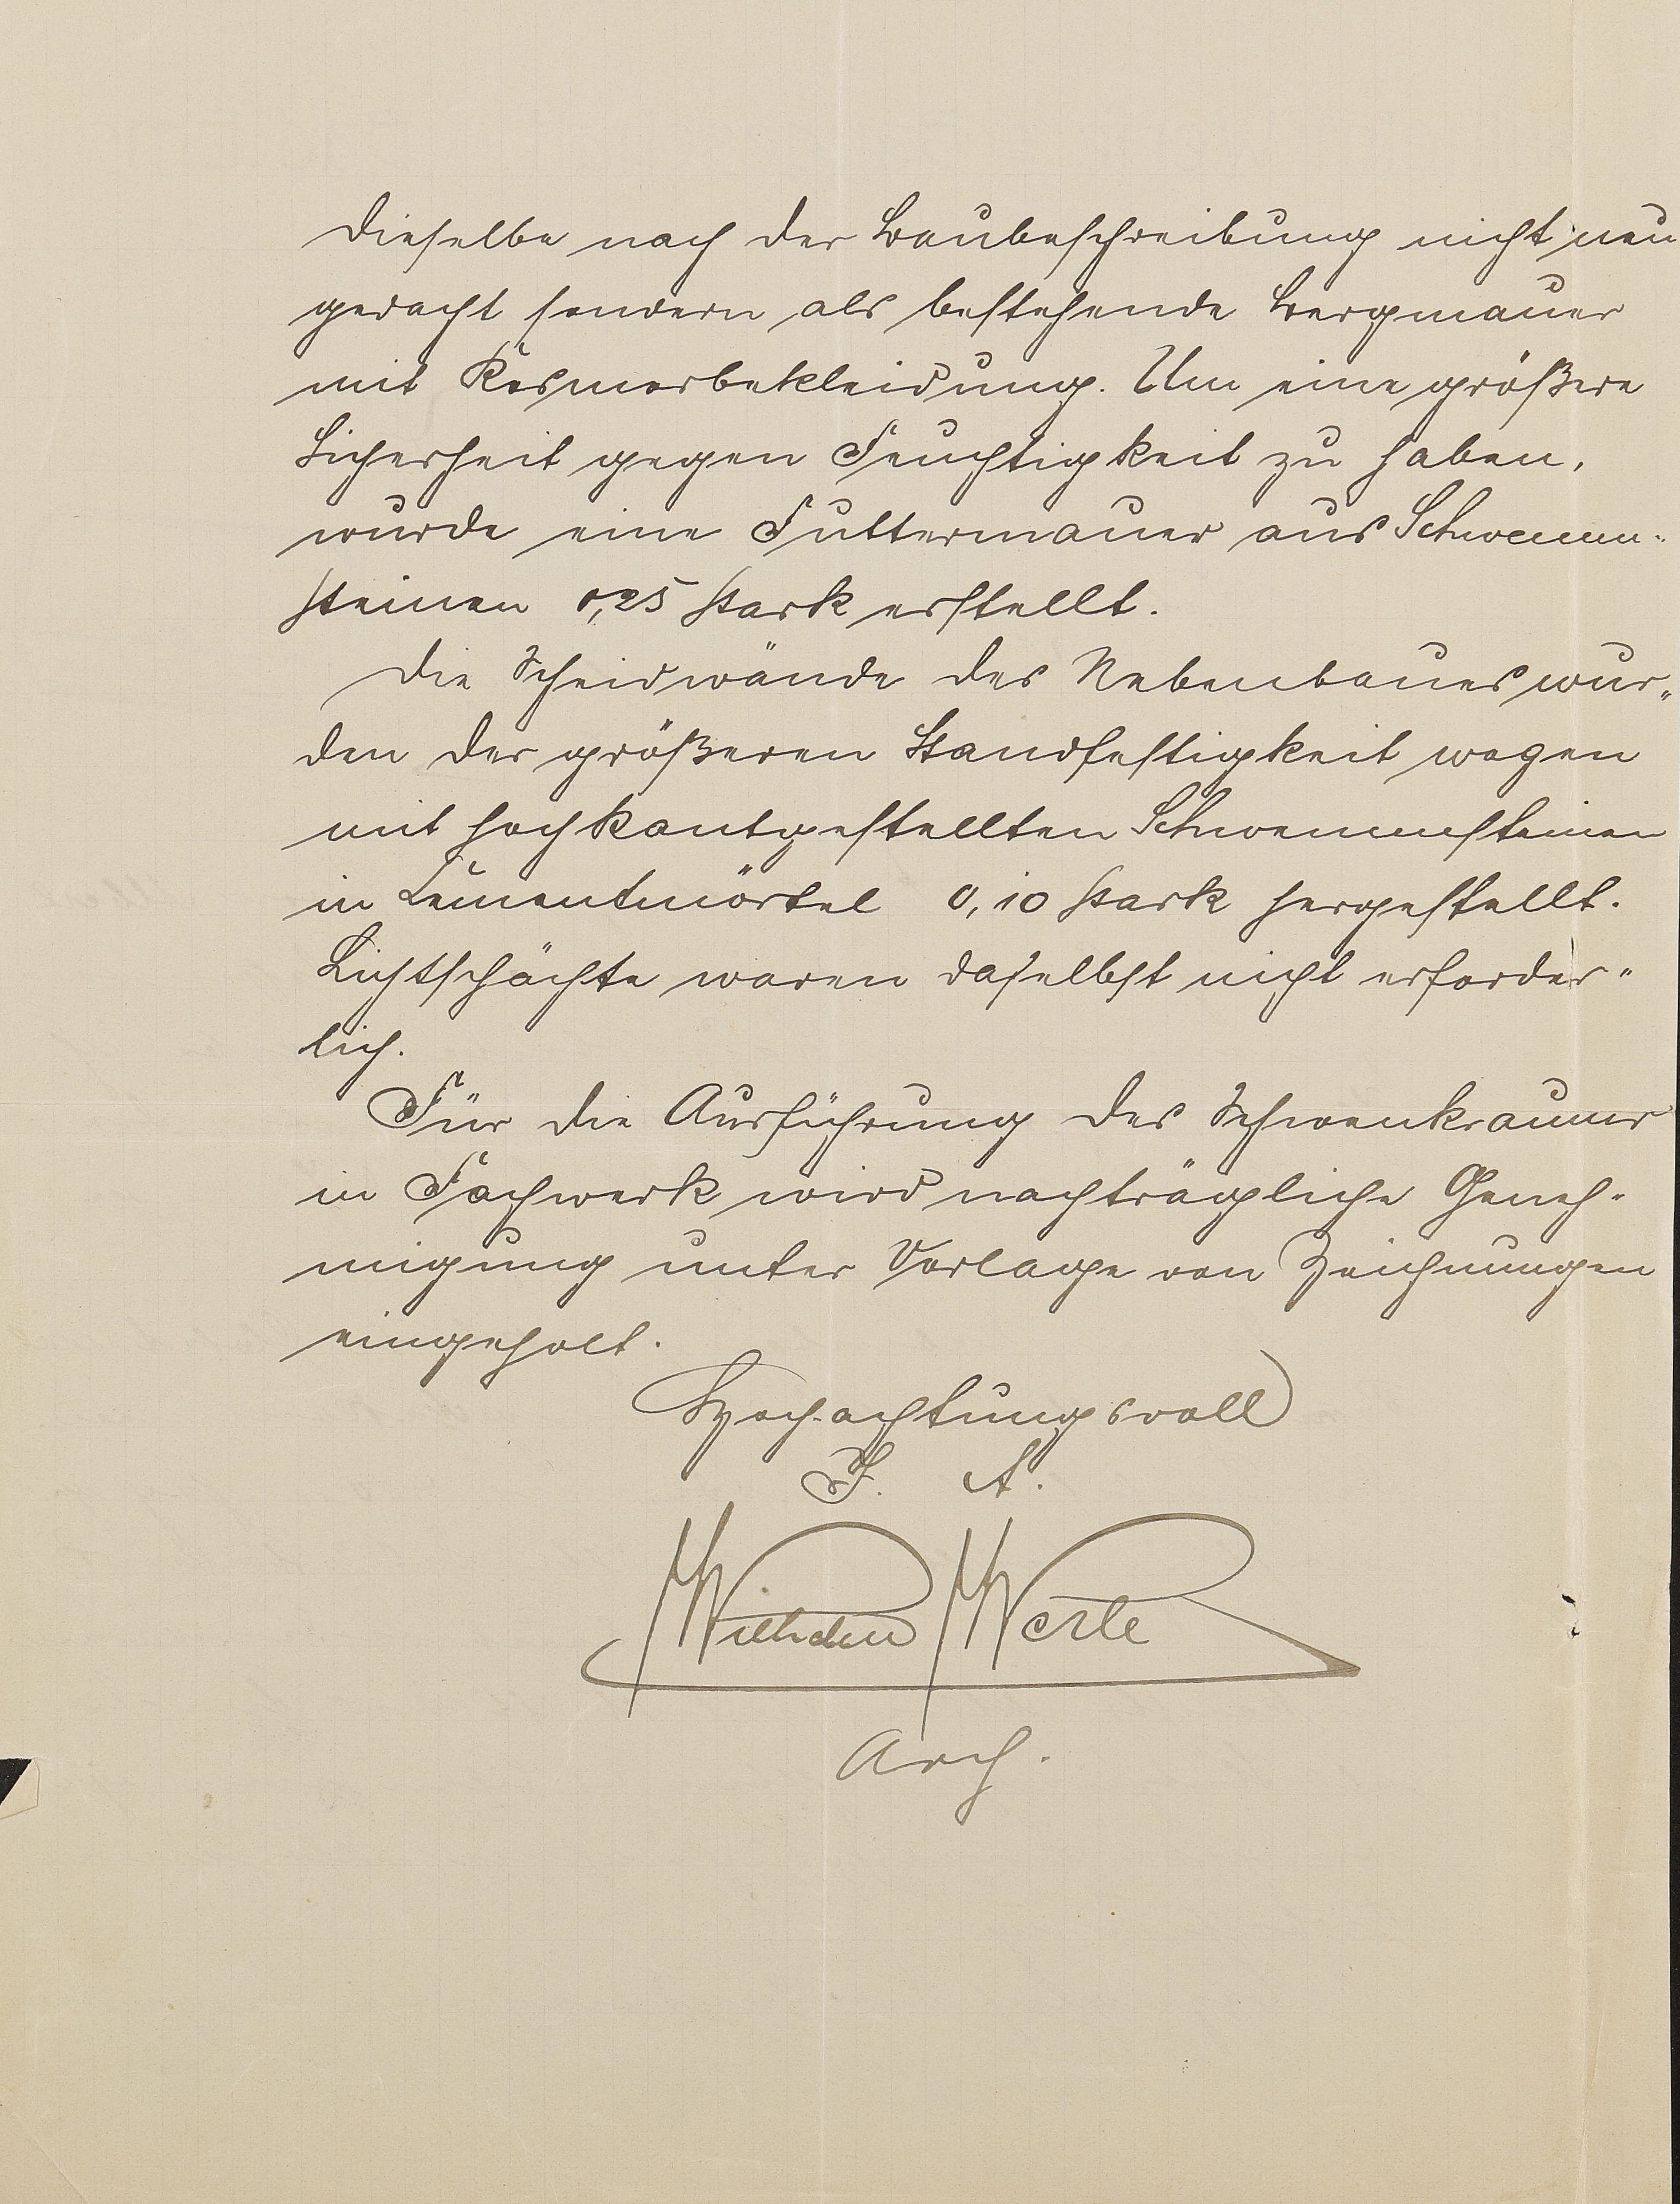 dieselbe nach der Baubeschreibung nicht neu
gedacht sondern als bestehende Bergmauer
mit Kosmosbekleidung. Um eine größere
Sicherheit gegen Feuchtigkeit zu haben,
wurde eine Futtermauer aus Schwemm-
steinen 0,25 stark erstellt.
Die Scheidwände des Nebenbaues wur-
den der größeren Standfestigkeit wegen
mit hochkantgestellten Schwemmsteinen
in Cementmörtel 0,10 stark hergestellt.
Lichtschächte waren daselbst nicht erforder-
lich.
Für die Ausführung des Schwenkraumes
in Fachwerk wird nachträgliche Geneh-
migung unter Vorlage von Zeichnungen
eingeholt.
Hochachtungsvoll
I. A.
Wilhelm Werle
Arch.